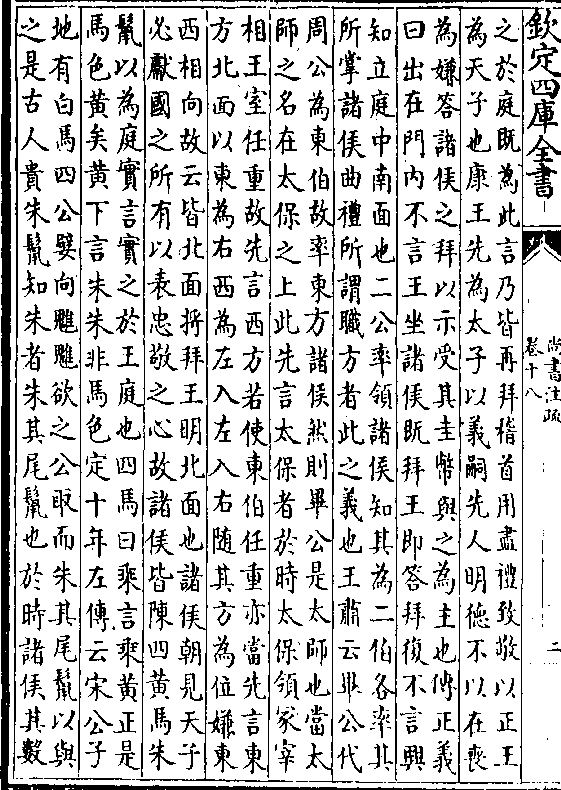 欽定四庫全書
尚書注疏
卷十八
二
之於庭既為此言乃皆再拜稽首用盡禮致敬以正王
為天子也康王先為太子以義嗣先人明德不以在喪
為嫌答諸侯之拜以示受其圭幣與之為主也傳正義
曰出在門內不言王坐諸侯既拜王即答拜復不言興
知立庭中南面也二公率領諸侯知其為二伯各率其
所掌諸侯曲禮所謂職方者此之義也王肅云畢公代
周公為東伯故率東方諸侯然則畢公是太師也當太
師之名在太保之上此先言太保者於時太保領冢宰
相王室任重故先言西方若使東伯任重亦當先言東
方北面以東為右西為左入左入右隨其方為位嫌東
西相向故云皆北面將拜王明北面也諸侯朝見天子
必獻國之所有以表忠敬之心故諸侯皆陳四黃馬朱
鬛以為庭實言實之於王庭也四馬曰乘言乘黃正是
馬色黃矣黃下言朱朱非馬色定十年左傳云宋公子
地有白馬四公嬖向魋魋欲之公取而朱其尾鬛以與
之是古人貴朱鬛知朱者朱其尾鬛也於時諸侯其數